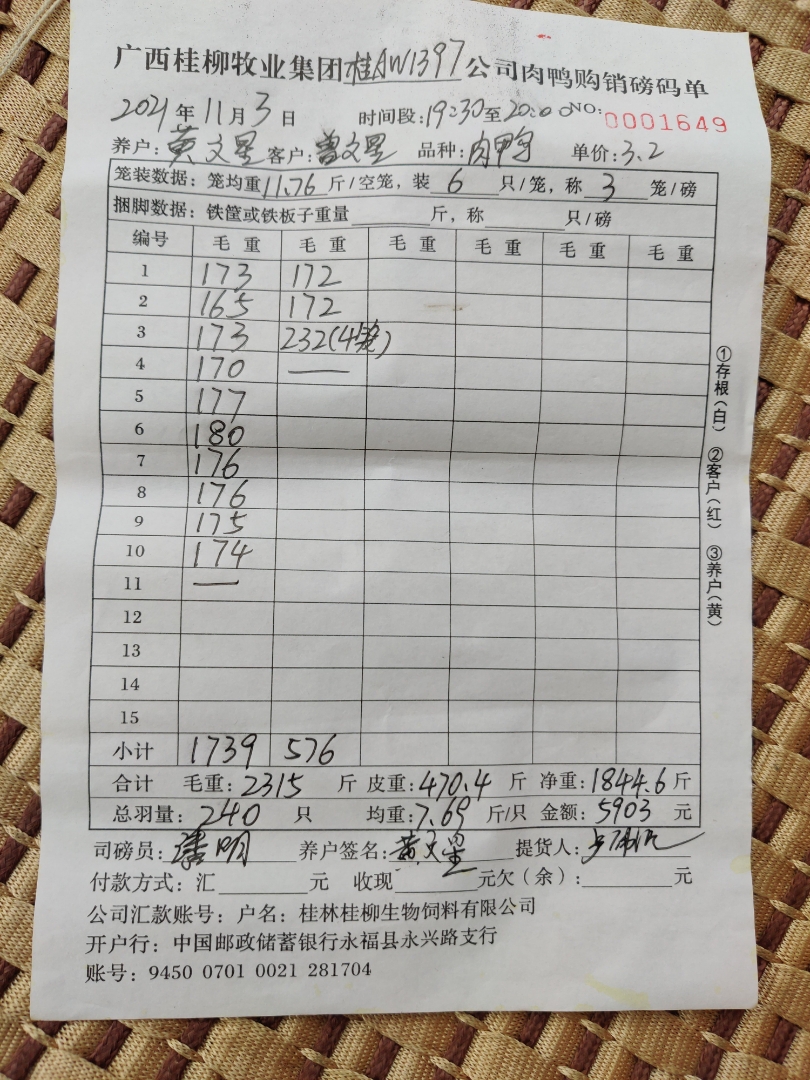 广西桂柳牧业集团桂AW1397公司肉鸭购销磅码单
2021年11月3日 时间段:19:30至20:00 NO: 0001649
养户:黄文星 客户:曾文星 品种:肉鸭 单价:3.2
笼装数据：笼均重11.76斤/空笼，装6只/笼，称3笼/磅
捆脚数据：铁筐或铁板子重量 斤，称 只/磅
编号 毛重 毛重 毛重 毛重 毛重 毛重
1 173 172
2 165 172
3 173 232(4笼)
4 170 —
5 177
6 180
7 176
8 176
9 175
10 174
11 —
12
13
14
15
小计 1739 576
合计 毛重:2315 斤 皮重:470.4 斤 净重:1844.6斤
总羽量:240 只 均重:7.69 斤/只 金额:5903 元
司磅员: 明 养户签名:黄文星 提货人:
付款方式：汇 元 收现 元欠（余）: 元
公司汇款账号：户名：桂林桂柳生物饲料有限公司
开户行：中国邮政储蓄银行永福县永兴路支行
账号：9450 0701 0021 281704
①存根(白) ②客户(红) ③养户(黄)